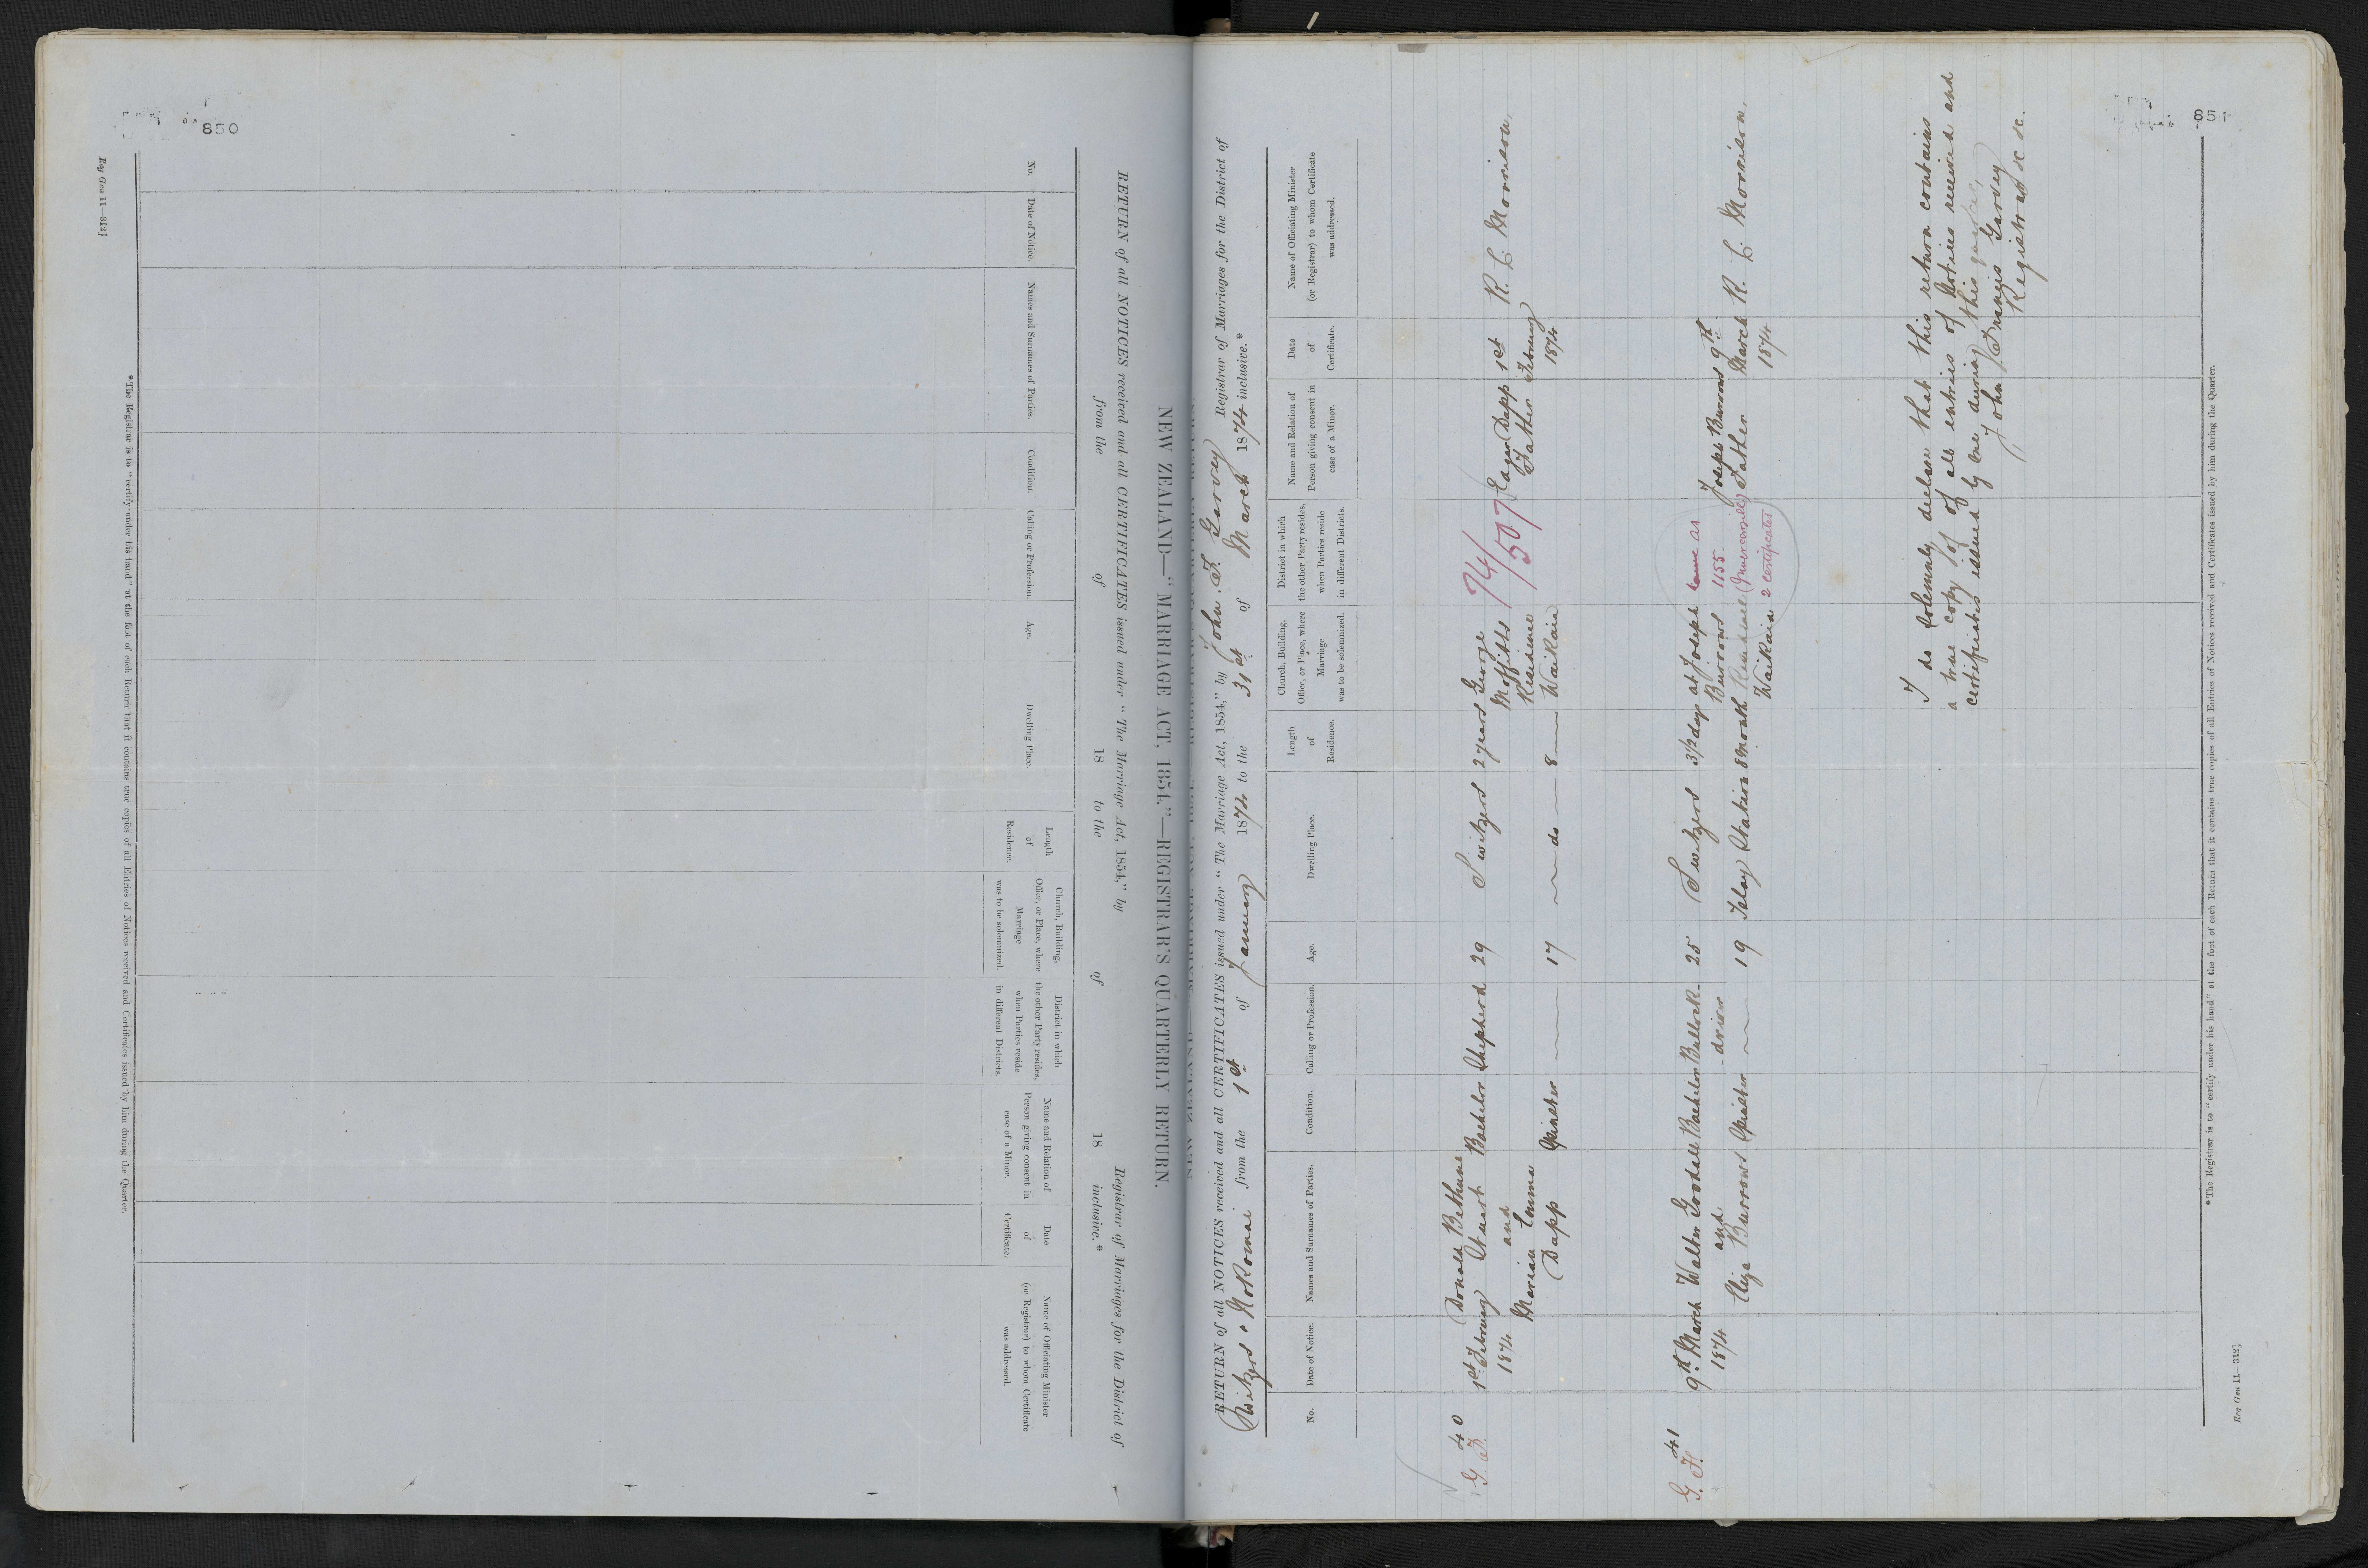 850
NEW ZEALAND—"MARRIAGE ACT, 1854."—REGISTRAR'S QUARTERLY RETURN.
RETURN of all NOTICES received and all CERTIFICATES issued under "The Marriage Act, 1854," by Registrar of Marriages for the District of
from the of 18 to the of 18 inclusive.*
No.
Date of Notice.
Names and Surnames of Parties.
Condition.
Calling or Profession.
Age.
Dwelling Place.
Length
of
Residence.
Church, Building,
Office, or Place, where
Marriage
was to be solemnized.
District in which
the other Party resides,
when Parties reside
in different Districts.
Name and Relation of
Person giving consent in
case of a Minor.
Date
of
Certificate.
Name of Officiating Minister
(or Registrar) to whom Certificate
was addressed.
*The Registrar is to "certify under his hand" at the foot of each Return that it contains true copies of all Entries of Notices received and Certificates issued by him during the Quarter.
Reg Gen 11—312]
851
RETURN of all NOTICES received and all CERTIFICATES issued under "The Marriage Act, 1854," by John F. Garvey Registrar of Marriages for the District of
Switzers & Nokomai from the 1st of January 1874 to the 31st of March 1874 inclusive.*
No.
Date of Notice.
Names and Surnames of Parties.
Condition.
Calling or Profession.
Age.
Dwelling Place.
Length
of
Residence.
Church, Building,
Office, or Place, where
Marriage
was to be solemnized.
District in which
the other Party resides,
when Parties reside
in different Districts.
Name and Relation of
Person giving consent in
case of a Minor.
Date
of
Certificate.
Name of Officiating Minister
(or Registrar) to whom Certificate
was addressed.
40
G. F.
1st February
1874
Donald Bethune
Stuart
and
Marian Emma
Dapp
Bachelor
Spinster
Shepherd
29
17
Switzers
do
2 years
8
George
Moffitts
Residence
Waikaia
74/
507
Edgar Dapp
Father
1st
February
1874
R. C. Morrison,
41
G. F.
9th March
1874
Walter Goodall
and
Eliza Burrows
Bachelor
Spinster
Bullock-
driver
25
19
Switzers
Islay Station
3 1/2 days
8 Month
at Joseph
Burrows
Residence
Waikaia
same as
1155
(Invercargill)
2 certificates
Joseph Burrows
Father
9th
March
1874
R. C. Morrison,
I do solemnly declare that this return contains
a true copy of all entries of Notices received and
certificates issued by me during this quarter,
John Francis Garvey
Registrar &c &c.
*The Registrar is to "certify under his hand" at the foot of each Return that it contains true copies of all Entries of Notices received and Certificates issued by him during the Quarter.
Reg Gen 11—312]